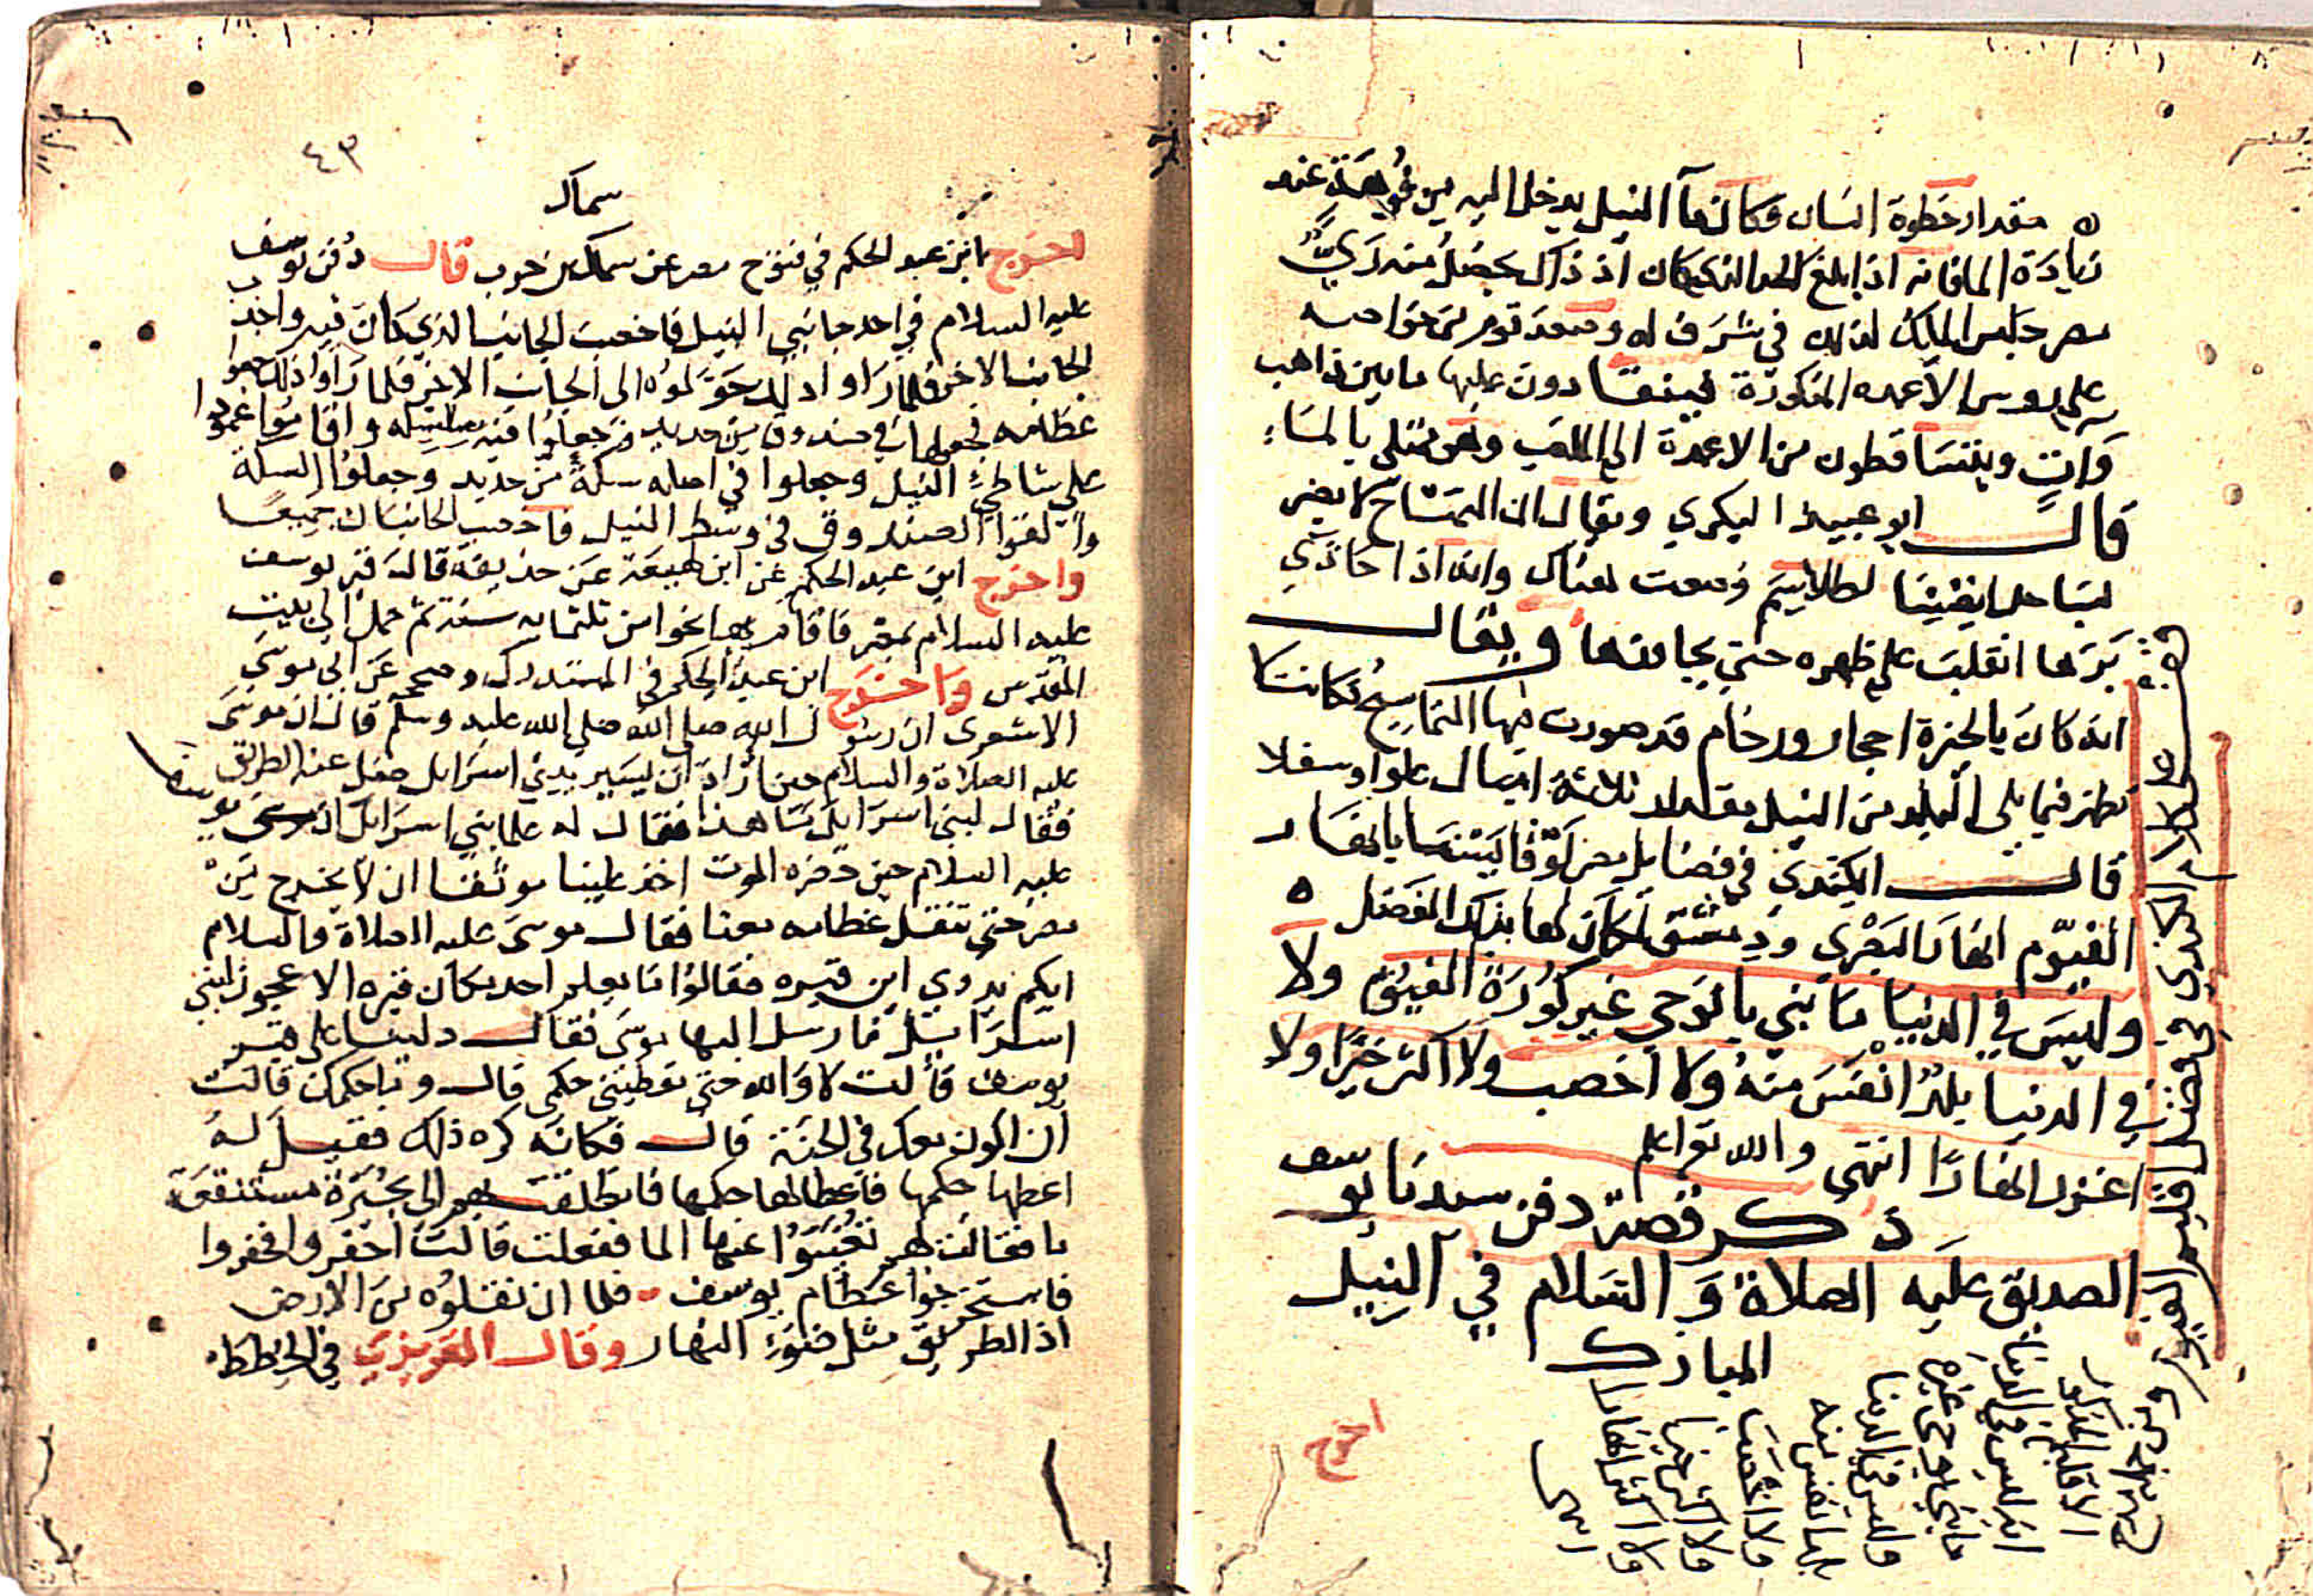 مقدار خطوة انسان فكان مآ النيل يدخل اليه من فوهة عند
زيادة الما فانه اذا بلغ الحد الذي كان اذ ذاك يحصل منه ري
مصر جلس الملك لذلك في مشرف له وصعد قوم من خواصه
على روس الاعمده المذكورة فيتعادون عليها ما بين ذاهب
وات ويتساقطون من الاعمدة الى الملعب وهو ممتلي بالماء
قال ابو عبيد البكري ويقال ان التمساح لا يضر
بساحل لطلاسم وضعت هناك وانه اذا حاذي
برها انقلب على ظهره حتى يجاوزها ويقال
انه كان بالجيزة احجار ورخام قد صورت فيها التماسيح فكانت لا
تظهر فيما يلي البلد من النيل مقدار ثلاثة اميال علوا وسفلا
قال الكندي في فضايل مصر لو قايسنا بانهار
الفيوم انهار البصرى ودمشق لكان لها بذلك الفضل
وليس في الدنيا ما بني بالوحي غير كورة الفيوم ولا
في الدنيا بلد انفس منه ولا اخصب ولا اكثر خيرا ولا
اغزر انهارا انتهى والله تع اعلم
ذكر قصة دفن سيدنا يوسف
الصديق عليه الصلاة والسلام في النيل
المبارك
اخرج
على كلام الكندي في فضل اقليم الفيوم
الاقليم المذكور
انه ليس في الدنيا
ما بني بوحي غيره
وليس في الدنيا
بلدا انفس منه
ولا اخصب
ولا اكثر خيرا
ولا اكثر انهارا
انتهى
٤٣
سماك
اخرج ابن عبد الحكم في فتوح مصر عن سماك بن حرب قال دفن يوسف
عليه السلام في احد جانبي النيل فاخصب الجانب الذي كان فيه واجدب
الجانب الاخر فلما راوا ذلك حولوه الى الجانب الاخر فلما راوا ذلك جمعوا
عظامه فجعلوها في صندوق من حديد وجعلوا فيه سلسلة واقاموا عمودا
على شاطئ النيل وجعلوا في اصله سكة من حديد وجعلوا السكة
والقوا الصندوق في وسط النيل فاخصب الجانبان جميعا
واخرج ابن عبد الحكم عن ابن لهيعة عن حذيفة قال قبر يوسف
عليه السلام بمصر فاقام بها نحوا من ثلثمايه سنة ثم حمل الى بيت
المقدس واخرج ابن عبد الحكم في المستدرك وصححه عن ابي موسى
الاشعرى ان رسول الله صلى الله صلى الله عليه وسلم قال ان موسى
عليه الصلاة والسلام حين اراد ان يسير ببني اسرايل ضل عنه الطريق
فقال لبني اسرايل ما هذا فقال له علما بني اسرايل ان يوسف
عليه السلام حين حضره الموت اخذ علينا موثقا ان لا نخرج من
مصر حتى تنقل عظامه معنا فقال موسى عليه الصلاة والسلام
ايكم يدري اين قبره فقالوا ما يعلم احد مكان قبره الا عجوز لبني
اسرايل فارسل اليها موسى فقال دلينا على قبر
يوسف قالت لا والله حتى تعطيني حكمي قال وما حكمك قالت
ان اكون معك في الجنة قال فكانه كره ذلك فقيل له
اعطها حكمها فاعطاها حكمها فانطلقت بهم الى بحيرة مستنقعة
ما فقالت لهم نضبوا عنها الما ففعلت قالت احفروا فحفروا
فاستخرجوا عظام يوسف فلما ان نقلوه من الارض
اذ الطريق مثل ضوء النهار وقال المقريزي في الخطط